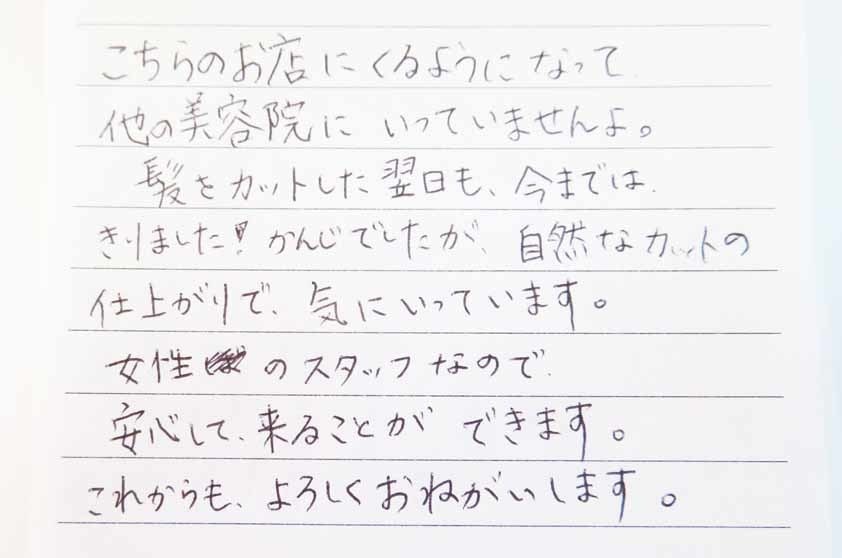 こちらのお店にくるようになって
他の美容院に いっていませんよ。
髪をカットした翌日も、今までは、
きりました!かんじでしたが、自然なカットの
仕上がりで、気にいっています。
女性のスタッフなので、
安心して、来ることが できます。
これからも、よろしくおねがいします。